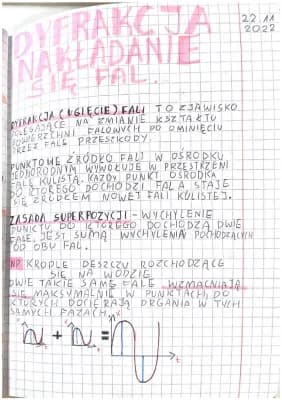 DYFRAKCJA
22.11
2022
NAKŁADANIE
SIĘ FAL.
DYFRAKCJA (UGIĘCIE) FALI TO ZJAWISKO
POLEGAJĄCE NA ZMIANIE KSZTAŁTU
POWIERZCHNI FALOWYCH PO OMINIĘCIU
PRZEZ FALE PRZESZKODY.
PUNKTOWE ŹRÓDŁO FALI W OŚRODKU
JEDNORODNYM WYWOŁUJE W PRZESTRZENI
FALĘ KULISTĄ. KAŻDY PUNKT OŚRODKA
DO KTÓREGO DOCHODZI FALA STAJE
SIĘ ŹRÓDŁEM NOWEJ FALI KULISTEJ.
ZASADA SUPERPOZYCJI - WYCHYLENIE
PUNKTU DO KTÓREGO DOCHODZĄ DWIE
FALE, JEST SUMĄ WYCHYLENIA POCHODZĄCYCH
OD OBU FAL.
NP. KROPLE DESZCZU ROZCHODZĄCE
SIĘ NA WODZIE
DWIE TAKIE SAME FALE WZMACNIAJĄ
SIĘ MAKSYMALNIE W PUNKTACH, DO
KTÓRYCH DOCIERAJĄ DRGANIA W TYCH
SAMYCH FAZACH.
x + x = x
t t t